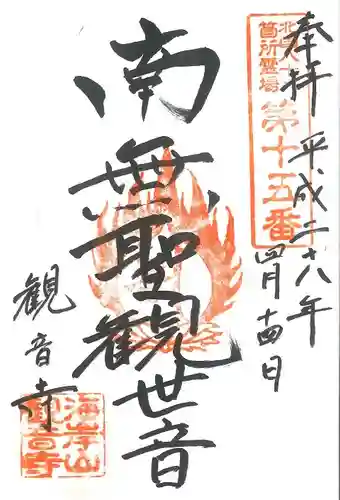 奉拝 平成二十八年
四月十四日
第十五番
箇所霊場
南無聖観世音
観音寺
海岸山
観音寺